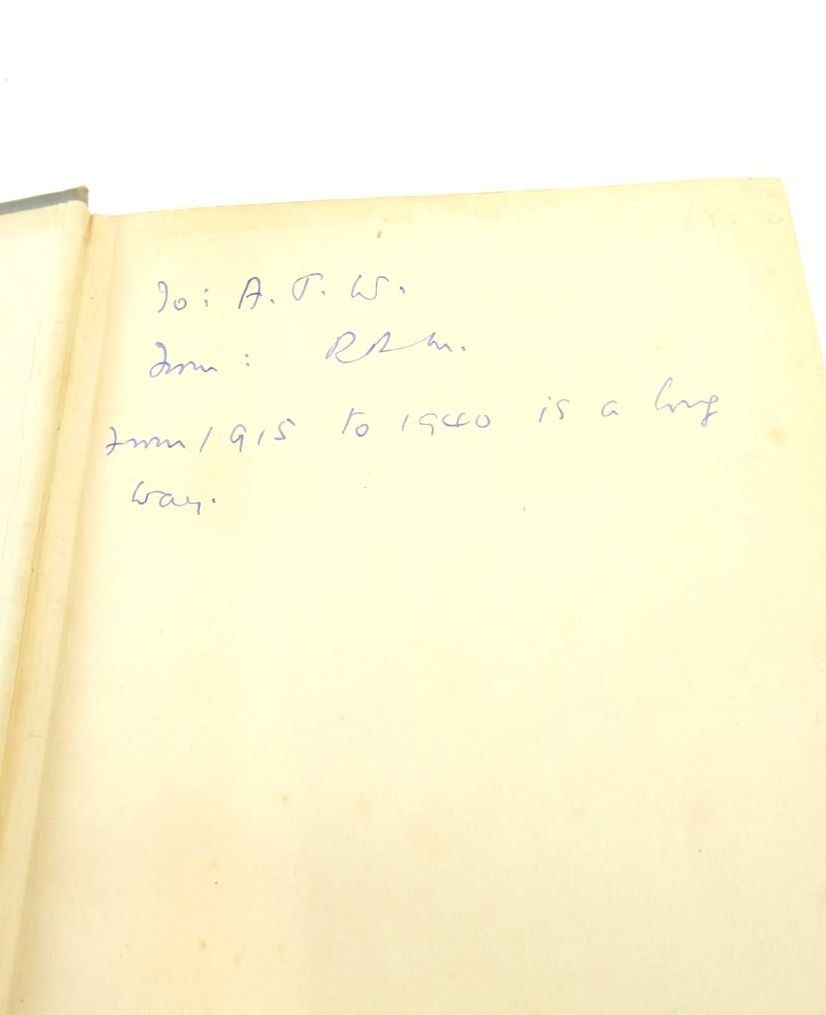 To: A. T. W.
From:
From 1915 to 1940 is a long
way.